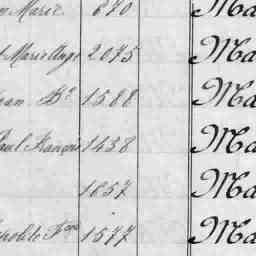 n Marie 670 Ma
t Marie Ange 2075 Ma
ean Bte 1588 Ma
Paul François 1438 Ma
1657 Ma
polite Fçois 1577 Ma